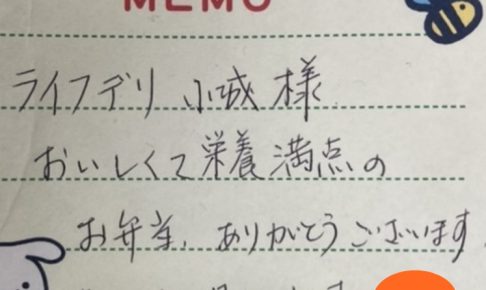 MEMO
ライフデリ 小城 様
おいしくて栄養満点の
お弁当、ありがとうございます